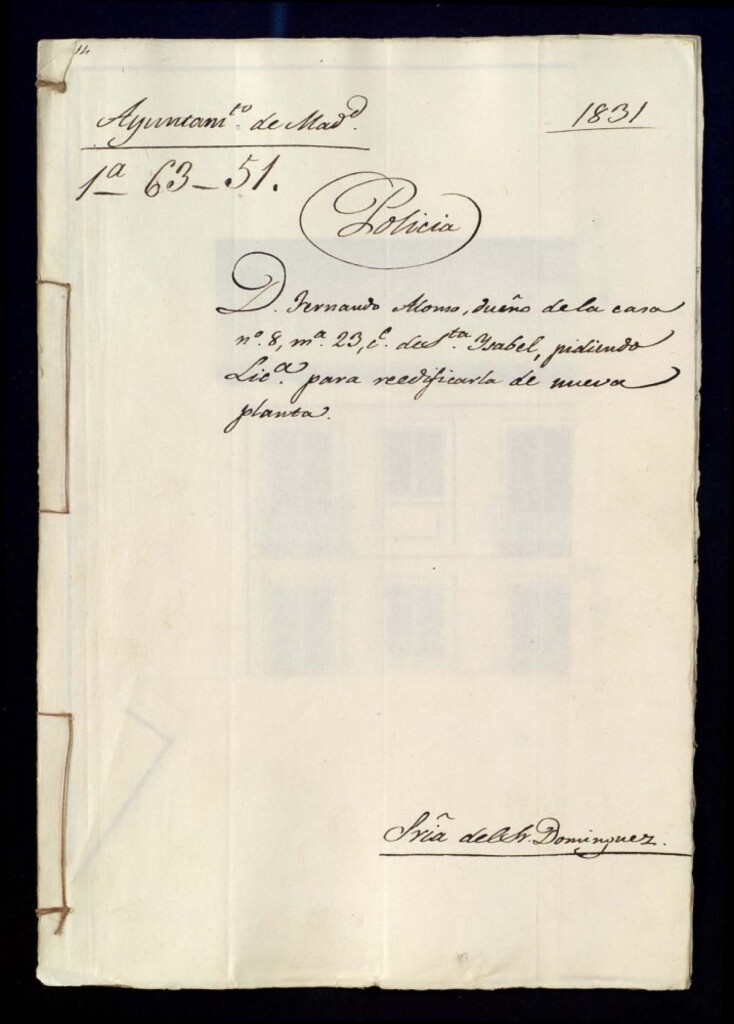 Ayuntam.to de Mad.d
1831
1.a 63-51.
Policia
D. Fernando Alonso, dueño de la casa
n.o 8, m.a 23, c.e de S.ta Ysabel, pidiendo
Lic.a para reedificarla de nueva
planta.
Sría del Sr. Dominguez.